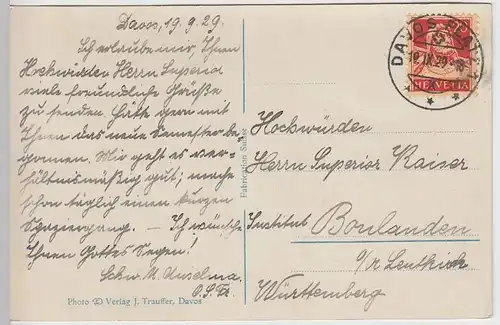 Davos, 19.9.29.
Ich erlaube mir, Ihnen
Hochwürden Herrn Superior
viele freundliche Grüße
zu senden. Hätte gern mit
Ihnen das neue Semester be-
gonnen. Mir geht es ver-
hältnismäßig gut; mache
schon täglich einen kurzen
Spaziergang. — Ich wünsche
Ihnen Gottes Segen!
Schw. M. Anselma
O.S.Fr.
Photo Verlag J. Trauffer, Davos
Fabrication Suisse
DAVOS-PLATZ
HELVETIA
Hochwürden
Herrn Superior Kaiser
Institut Bonlanden
b/r Leutkirch
Württemberg